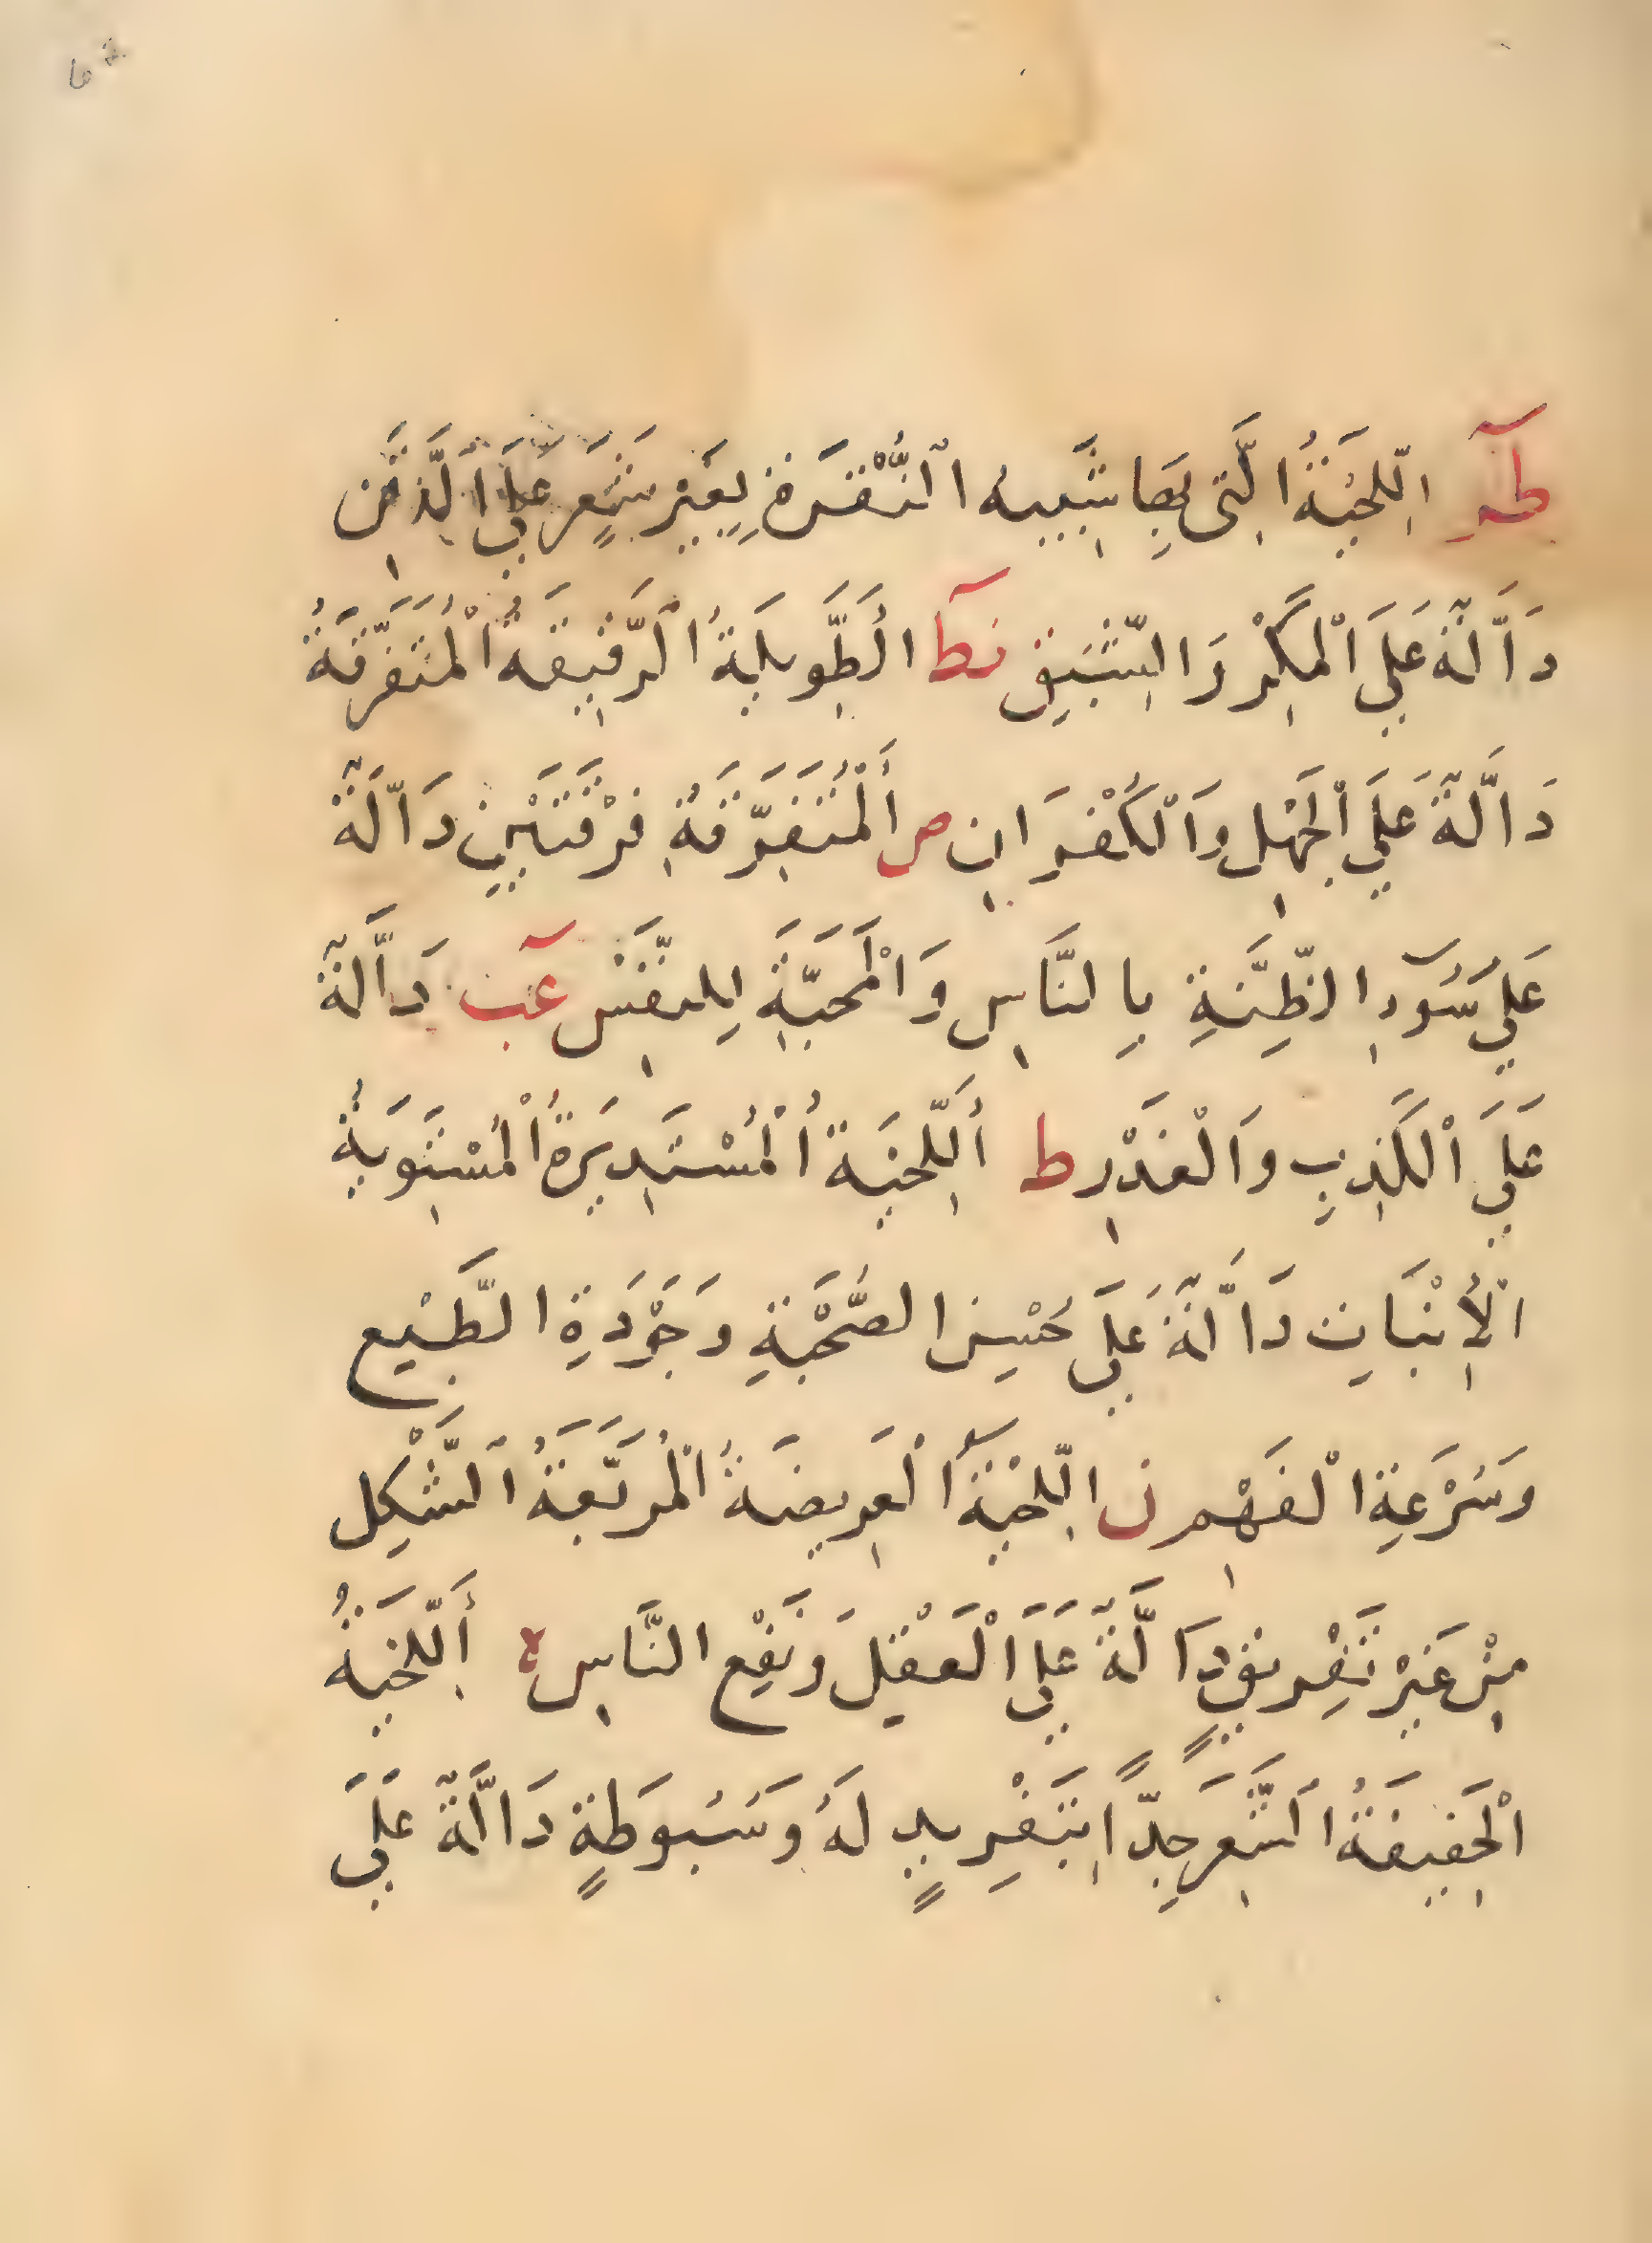 طه اللِّحْيَةُ الَّتِي بِهَا شَبِيه النُّقْرَةِ بِغَيْرِ شَعَرٍ عَلَى الذَّقَنِ
دَالَّةٌ عَلَى الْمَكْرِ وَالشَّبَقِ نط الطَّوِيلَةُ الرَّقِيقَةُ الْمُتَفَرِّقَةُ
دَالَّةٌ عَلَى الْجَهْلِ وَالْكُفْرَانِ ص أَلْمُتَفَرِّقَةُ فِرْقَتَيْنِ دَالَّةٌ
عَلَى سُوءِ الظِّنَّةِ بِالنَّاسِ وَالْمَحَبَّةِ لِلنَّفْسِ عب دَالَّةٌ
عَلَى الْكَذِبِ وَالْغَدْرِ ط أَللِّحْيَة الْمُسْتَدِيرَةُ الْمُسْتَوِيَةُ
الْإِنْبَاتِ دَالَّةٌ عَلَى حُسْنِ الصُّحْبَةِ وَجَوْدَةِ الطَّبْعِ
وَسُرْعَةِ الْفَهْمِ ن اللِّحْيَةُ الْعَرِيضَةُ الْمُرَبَّعَةُ الشَّكْلِ
مِنْ غَيْرِ تَفْرِيقٍ دَالَّةٌ عَلَى الْعَقْلِ وَنَفْعِ النَّاسِ أَللِّحْيَةُ
الْخَفِيفَةُ الشَّعَرِ جِدًّا بِتَفْرِيدٍ لَهُ وَسُبُوطَةٍ دَالَّةٌ عَلَى